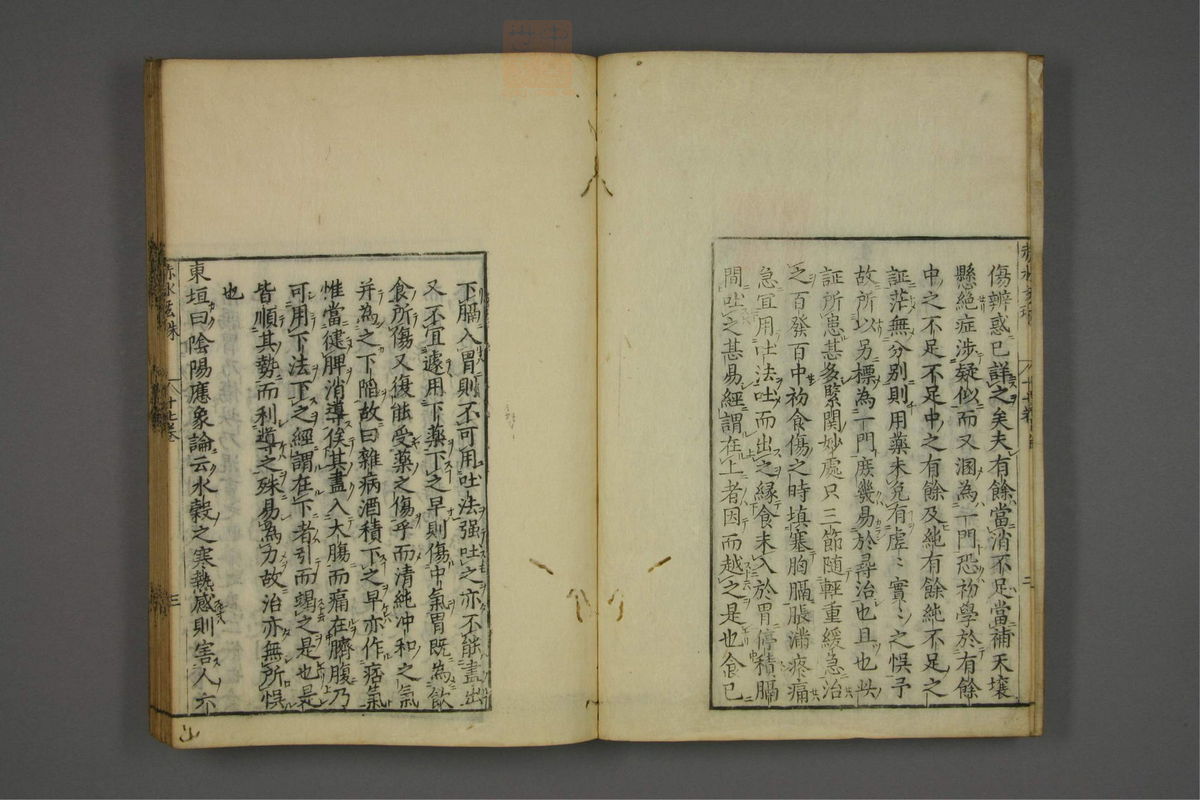 傷辨惑已詳之矣夫有餘當消不足當補天壤
懸絶症涉疑似而又溷為一門恐初學於有餘
中之不足不足中之有餘及純有餘純不足之
証茫無分別則用藥未免有虛〻實〻之悞予
故所以另標為一門庶幾易於尋治也且也此
証所患甚多緊関妙處只三節随輕重緩急治
之百發百中初食傷之時填塞胸膈脹滿疼痛
急宜用吐法吐而出之縁食未入於胃停積膈
間吐之甚易經謂在上者因而越之是也食已
下膈入胃則不可用吐法强吐之亦不能盡出
又不宜遽用下藥下之早則傷中氣胃既為飲
食所傷又復能受藥之傷乎而清純冲和之氣
并為之下陷故曰雜病酒積下之早亦作痞氣
惟當健脾消導俟其盡入大腸而痛在臍腹乃
可用下法下之經謂在下者引而竭之是也是
皆順其勢而利導之殊易為力故治亦無所悞
也
東垣曰陰陽應象論云水穀之寒熱感則害人六
赤水玄珠
十七卷
三